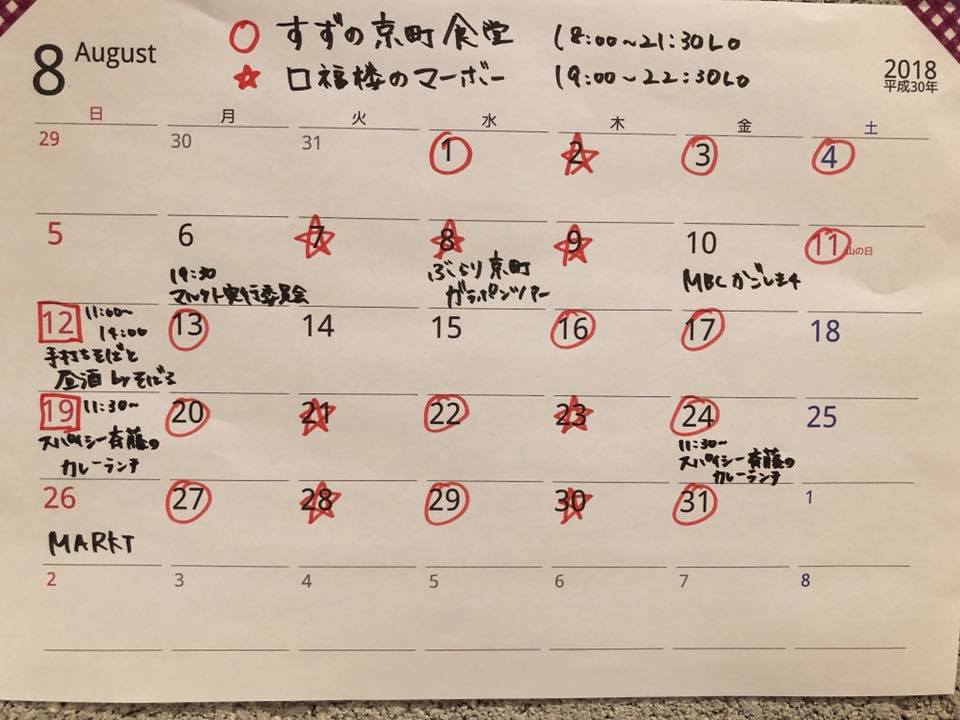 8 August
すずの京町食堂 18:00~21:30LO
口福楼のマーボー 19:00~22:30LO
2018
平成30年
日 月 火 水 木 金 土
29 30 31 1 2 3 4
5 6 7 8 9 10 11 山の日
19:30
マルクト実行委員会
ぶらり京町
ガラポンツアー
MBC かごしま4
12 11:00~
19:00
手打ちそばと
昼酒 by そばる
13 14 15 16 17 18
19 11:30~
スパイシー斉藤の
カレーランチ
20 21 22 23 24 25
11:30~
スパイシー斉藤の
カレーランチ
26 27 28 29 30 31 1
MARKT
2 3 4 5 6 7 8